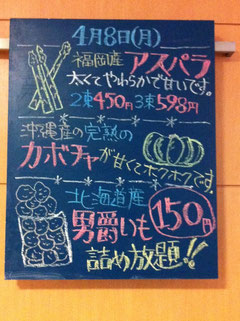 4月8日(月)
福岡産 アスパラ
太くてやわらかで甘いです。
2束450円3束598円
沖縄産の完熟の
カボチャが甘くてホクホクです。
北海道産
男爵いも 150円
詰め放題!!